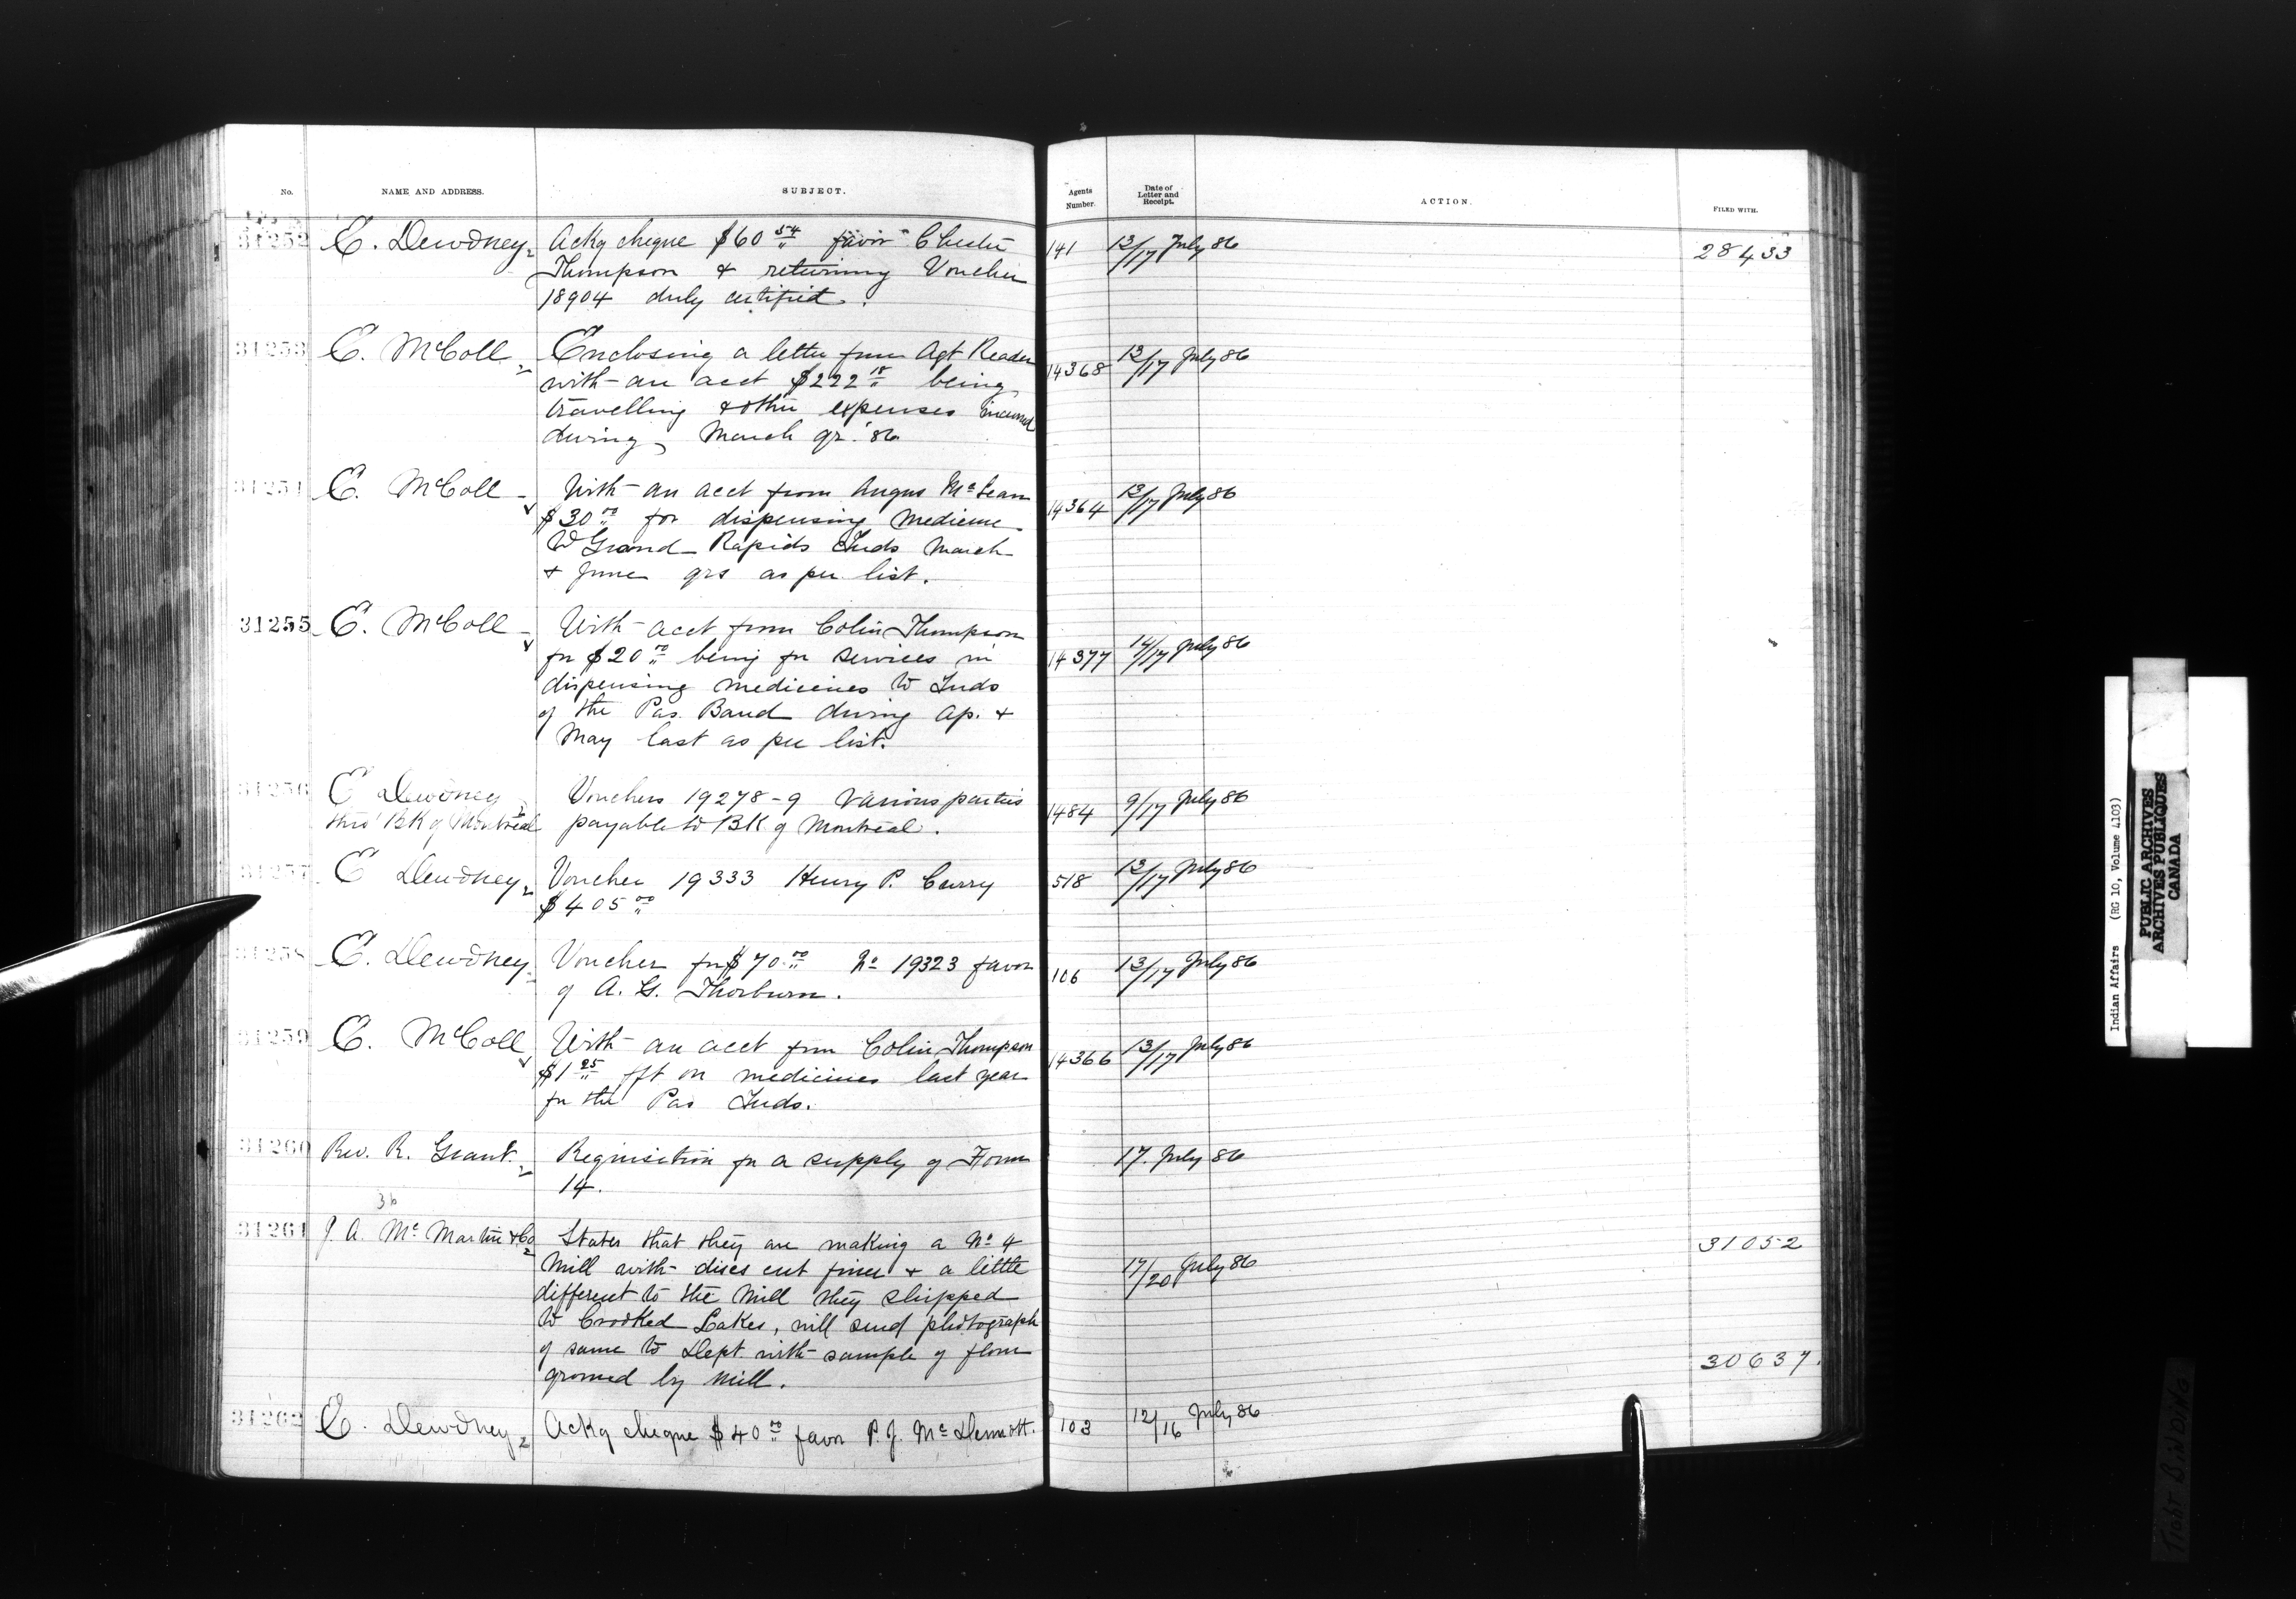 No. NAME AND ADDRESS. SUBJECT. Agents Number. Date of Letter and Receipt. ACTION. FILED WITH.
31252 E. Dewdney Ackg cheque $60 54 favor Chester 141 13/17 July 86 28433
Thompson & returning Voucher
18904 duly certified.
31253 E. McColl Enclosing a letter from Agt Reader 14368 13/17 July 86
with an acct $222 18 being
travelling & other expenses incurred
during March qr. '86
31254 E. McColl With an acct from Angus McLean 14364 13/17 July 86
$30 00 for dispensing medicine
to Grand Rapids Inds March
& June qrs as per list.
31255 E. McColl With acct from Colin Thompson 14377 14/17 July 86
for $20 00 being for services in
dispensing medicines to Inds
of the Pas Band during Ap. &
May last as per list.
31256 E Dewdney Vouchers 19278-9 various parties 1484 9/17 July 86
thro' BK of Montreal payable to BK of Montreal.
31257 E Dewdney Voucher 19333 Henry P. Curry 518 13/17 July 86
$405 00
31258 E. Dewdney Voucher for $70 00 No 19323 favor 106 13/17 July 86
of A. G. Thorburn.
31259 E. McColl With an acct from Colin Thompson 14366 13/17 July 86
$1 25 fft on medicines last year
for the Pas Inds.
31260 Rev. R. Grant. Requisition for a supply of Form 17. July 86
14.
36
31261 J. A. McMartin & Co States that they are making a No 4 17/20 July 86 31052
Mill with discs cut finer & a little
different to the Mill they shipped
to Crooked Lakes, will send photograph
of same to Dept. with sample of flour 30637.
ground by Mill.
31262 E. Dewdney Ackg cheque $40 00 favor P. J. McDermott. 103 12/16 July 86
Indian Affairs (RG 10, Volume 4103)
PUBLIC ARCHIVES
ARCHIVES PUBLIQUES
CANADA
TIGHT BINDING